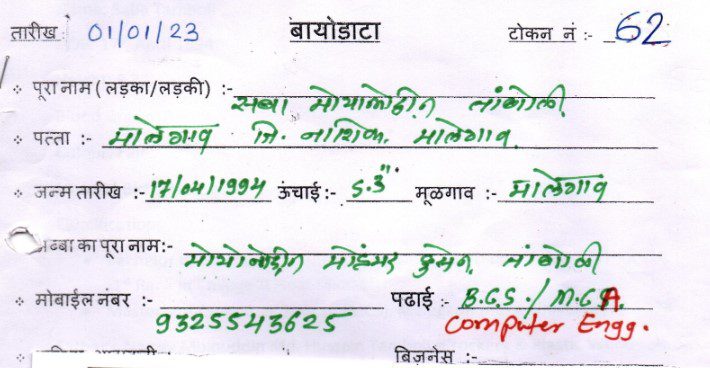 तारीख : 01/01/23 बायोडाटा टोकन नं :- 62
पूरा नाम ( लड़का/लड़की) :- सबा मोयोद्दीन तांबोळी
पत्ता :- मालेगाव जि. नाशिक. मालेगाव.
जन्म तारीख :- 17/04/1994 ऊंचाई :- 5.3" मूळगाव :- मालेगाव
अब्बा का पूरा नाम:- हुसेन तांबोळी
मोबाईल नंबर :- 9325543625 पढाई :- B.C.S./M.C.A.
Computer Engg.
बिज़नेस :-